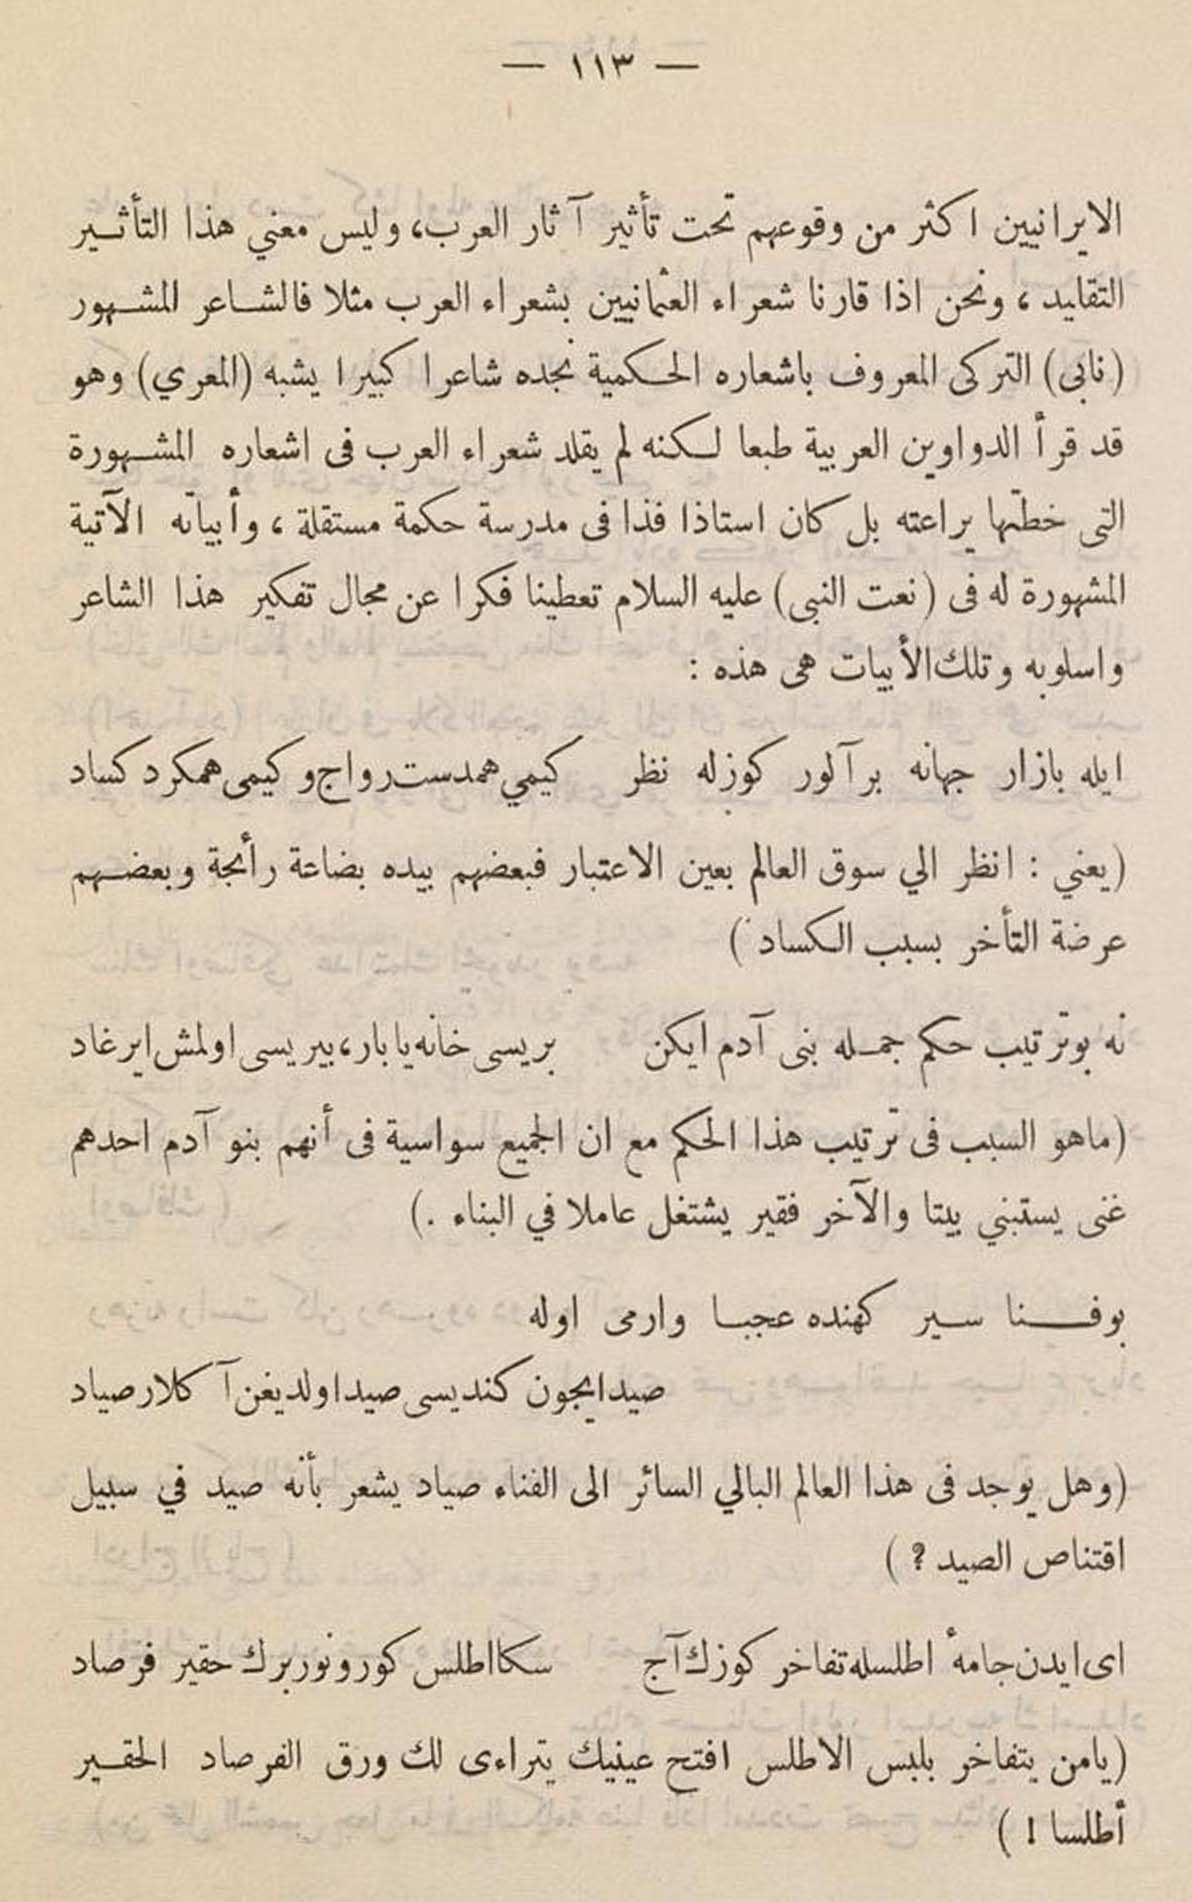 — ١١٣ —
الايرانيين اكثر من وقوعهم تحت تأثير آثار العرب، وليس معني هذا التأثير
التقليد ، ونحن اذا قارنا شعراء العثمانيين بشعراء العرب مثلا فالشاعر المشهور
(نابى) التركى المعروف باشعاره الحكمية نجده شاعرا كبيرا يشبه (المعري) وهو
قد قرأ الدواوين العربية طبعا لكنه لم يقلد شعراء العرب فى اشعاره المشهورة
التى خطتها يراعته بل كان استاذا فذا فى مدرسة حكمة مستقلة ، وأبياته الآتية
المشهورة له فى (نعت النبى) عليه السلام تعطينا فكرا عن مجال تفكير هذا الشاعر
واسلوبه وتلك الأبيات هى هذه :
ايله بازار جهانه بر آلور كوزله نظر كيمي همدست رواج و كيمى همكرد كساد
(يعني : انظر الي سوق العالم بعين الاعتبار فبعضهم بيده بضاعة رائجة وبعضهم
عرضة التأخر بسبب الكساد )
نه بوترتيب حكم جمله بنى آدم ايكن بريسى خانه يابار، بيريسى اولمش ايرغاد
(ماهو السبب فى ترتيب هذا الحكم مع ان الجميع سواسية فى أنهم بنو آدم احدهم
غنى يستبني بيتا والآخر فقير يشتغل عاملا في البناء .)
بوفنا سير كهنده عجبا وارمى اوله
صيد ايجون كنديسى صيد اولديغن آكلار صياد
(وهل يوجد فى هذا العالم البالي السائر الى الفناء صياد يشعر بأنه صيد في سبيل
اقتناص الصيد ? )
اى ايدن جامهٔ اطلسله تفاخر كوزك آج سكا اطلس كورونور برك حقير فرصاد
(يامن يتفاخر بلبس الاطلس افتح عينيك يتراءى لك ورق الفرصاد الحقير
أطلسا ! )